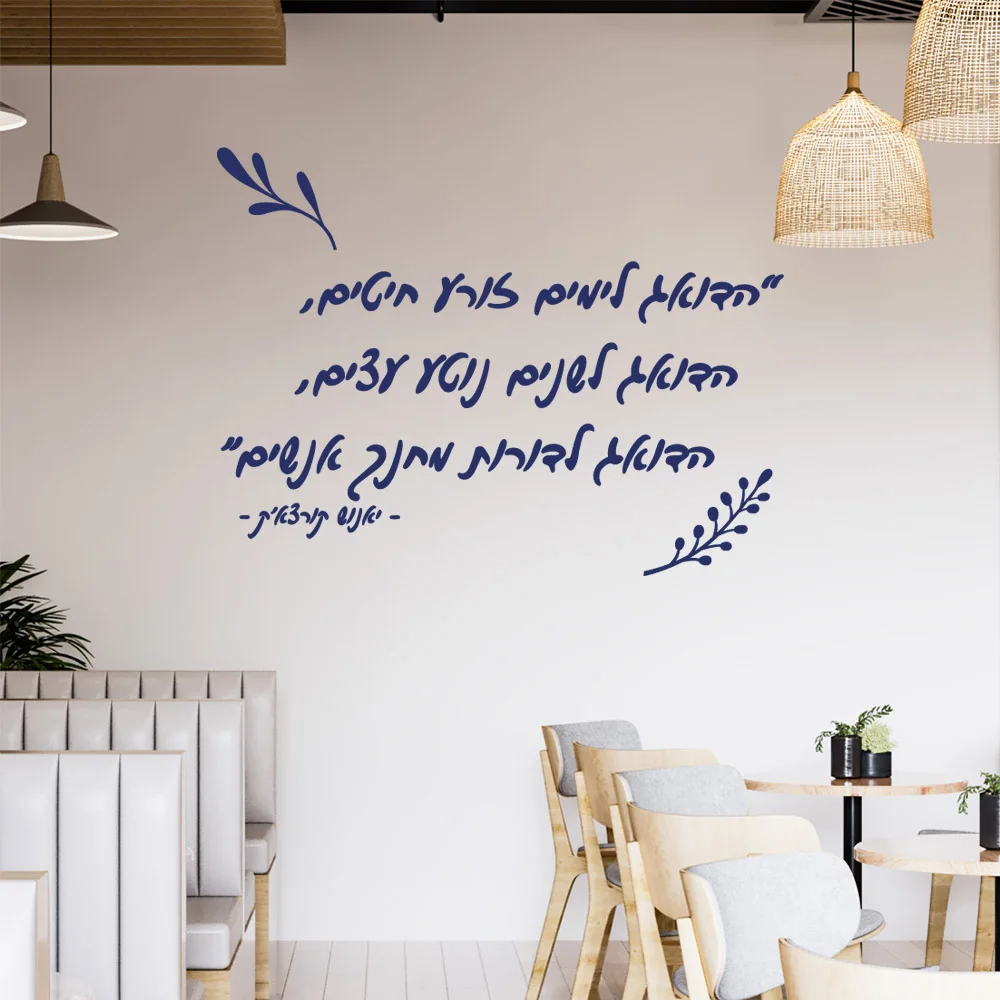 "הדואג לימים זורע חיטים,
הדואג לשנים נוטע עצים,
הדואג לדורות מחנך אנשים"
- יאנוש קורצא'ק -